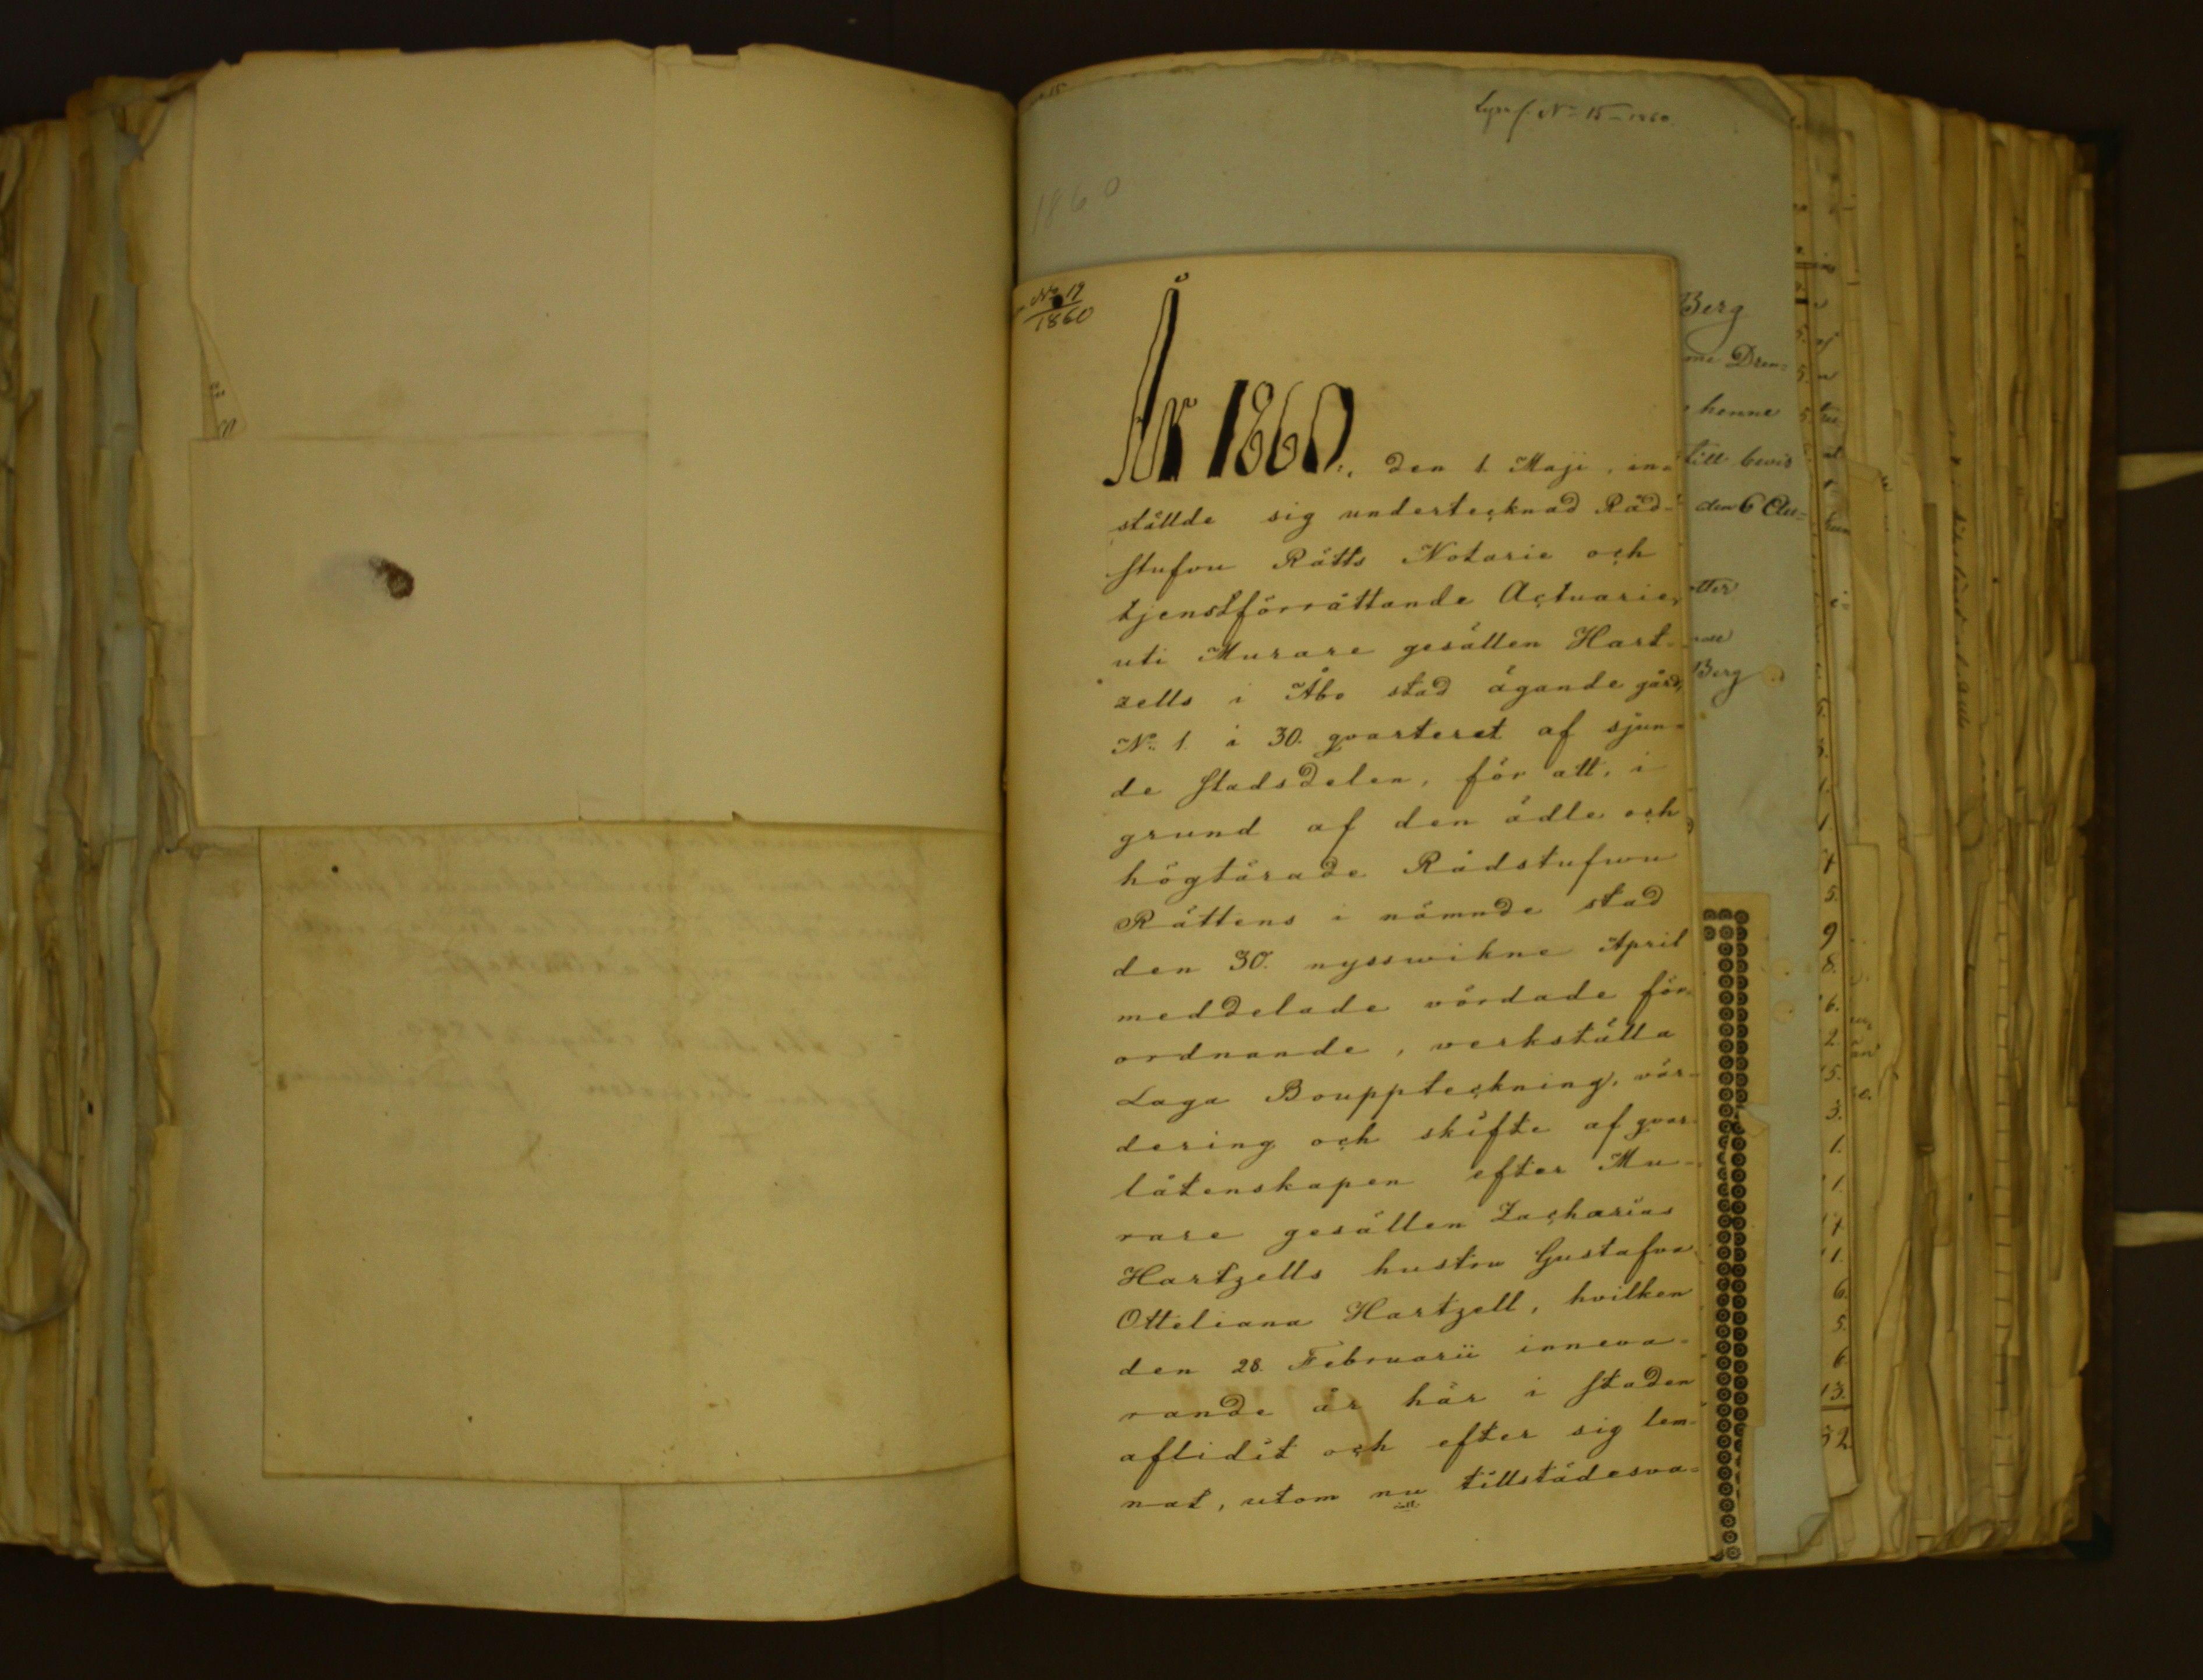 N:o 15 – 1860.
1860
No 19
1860
År 1860., den 1. Maji, in=
ställde sig undertecknad Råd=
stufvu Rätts Notarie och
tjenstförrättande Actuarie,
uti Murare gesällen Hart=
zells i Åbo stad ägande gård,
N:o 1. i 30. qvarteret af sjun=
de stadsdelen, för att, i
grund af den ädle och
högtärade Rådstufvu
Rättens i nämnde stad
den 30. nysswikne April
meddelade vördade för=
ordnande, verkställa
Laga Bouppteckning, vär=
dering och skifte af qvar=
låtenskapen efter Mu=
rare gesällen Zacharias
Hartzells hustru Gustafva
Otteliana Hartzell, hvilken
den 28. Februarii inneva=
rande år här i staden
aflidit och efter sig lem=
nat, utom nu tillstädesva=
Berg
henne
till bevis
den 6 Au=
Berg
5.
9
8.
6.
2.
5.
3.
1.
1.
1.
6.
5.
6.
13.
52.